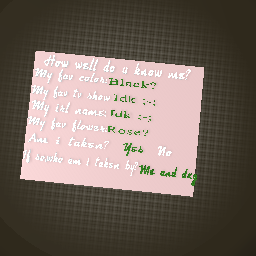 How well do u know me?
My fav color: Black?
My fav tv show Idk ;-;
My irl name: Idk ;-;
My fav flower Rose?
Am i taken? Yes No
If so, who am i taken by? Me and day